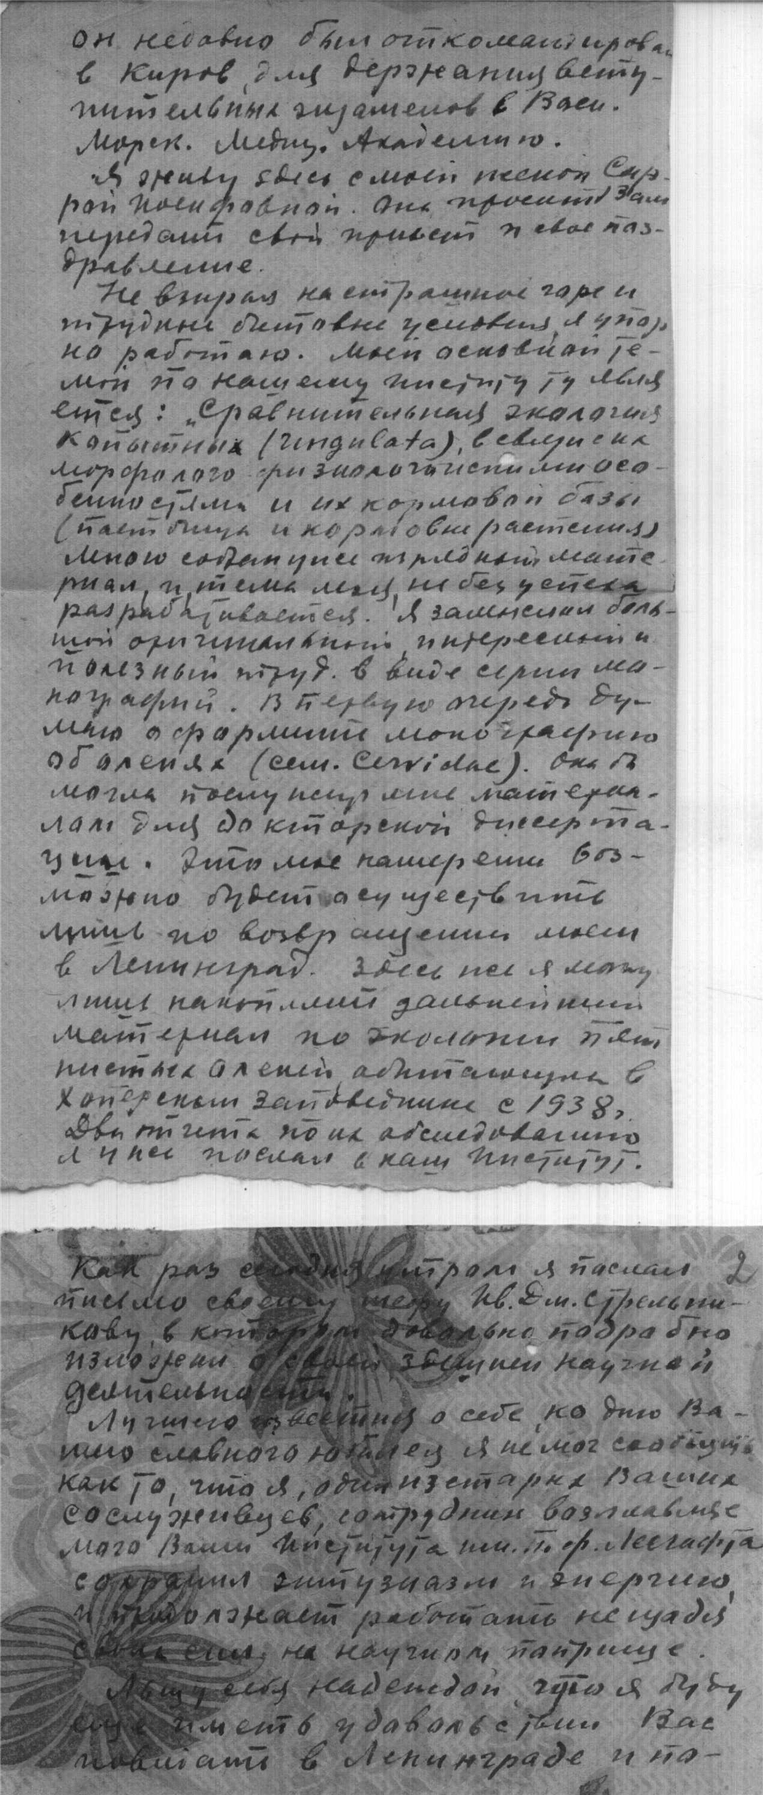 он недавно был откомандирован
в Киров для держания всту-
пительных экзаменов в Воен.
Морск. Медиц. Академию.
Я живу здесь с моей женой Сар-
рой Иосифовной. Она просит Вам
передать свой привет и свое поз-
дравление.
Не взирая на страшное горе и
трудные бытовые условия, я упор
но работаю. Моей основной те-
мой по нашему институту явля
ется: „Сравнительная экология
копытных (Ungulata), в связи с их
морфолого физиологическими осо-
бенностями и их кормовой базы
(пастбища и кормовые растения)
Мною собран уже изрядный мате
риал, и тема моя не без успеха
разрабатывается. Я замыслил боль-
шой оригинальный, интересный и
полезный труд. в виде серии мо-
нографий. В первую очередь ду-
маю оформить монографию
об оленях (сем. Cervidae). Она бы
могла послужить мне материа-
лом для докторской диссерта-
ции. Это мое намерение воз-
можно будет осуществить
лишь по возвращении моем
в Ленинград. Здесь же я могу
лишь накоплять дальнейший
материал по экологии пят
нистых оленей, обитающих в
Хоперском заповеднике с 1938 г.
Два отчета по их обследованию
я уже послал в наш Институт.
Как раз сегодня утром я послал 2
письмо своему шефу Ив. Дм. Стрельни-
кову, в котором довольно подробно
изложил о своей здешней научной
деятельности.
Лучшего известия о себе, ко дню Ва-
шего славного юбилея я не мог сообщить
как то, что я, один из старых Ваших
сослуживцев, сотрудник возглавляе
мого Вами Института им. П.Ф. Лесгафта
сохранил энтузиазм и энергию,
и продолжает работать не щадя
своих сил на научном поприще.
Льщу себя надеждой, что я буду
еще иметь удовольствие Вас
повидать в Ленинграде и по-